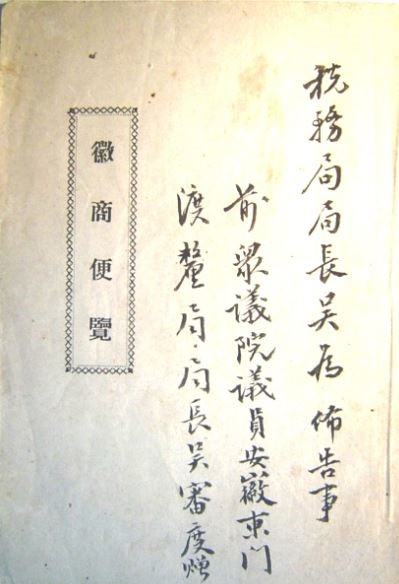 税務局局長吴為佈告事
前眾議院議員安徽東門
渡釐局局長吴審度
徽商便覽